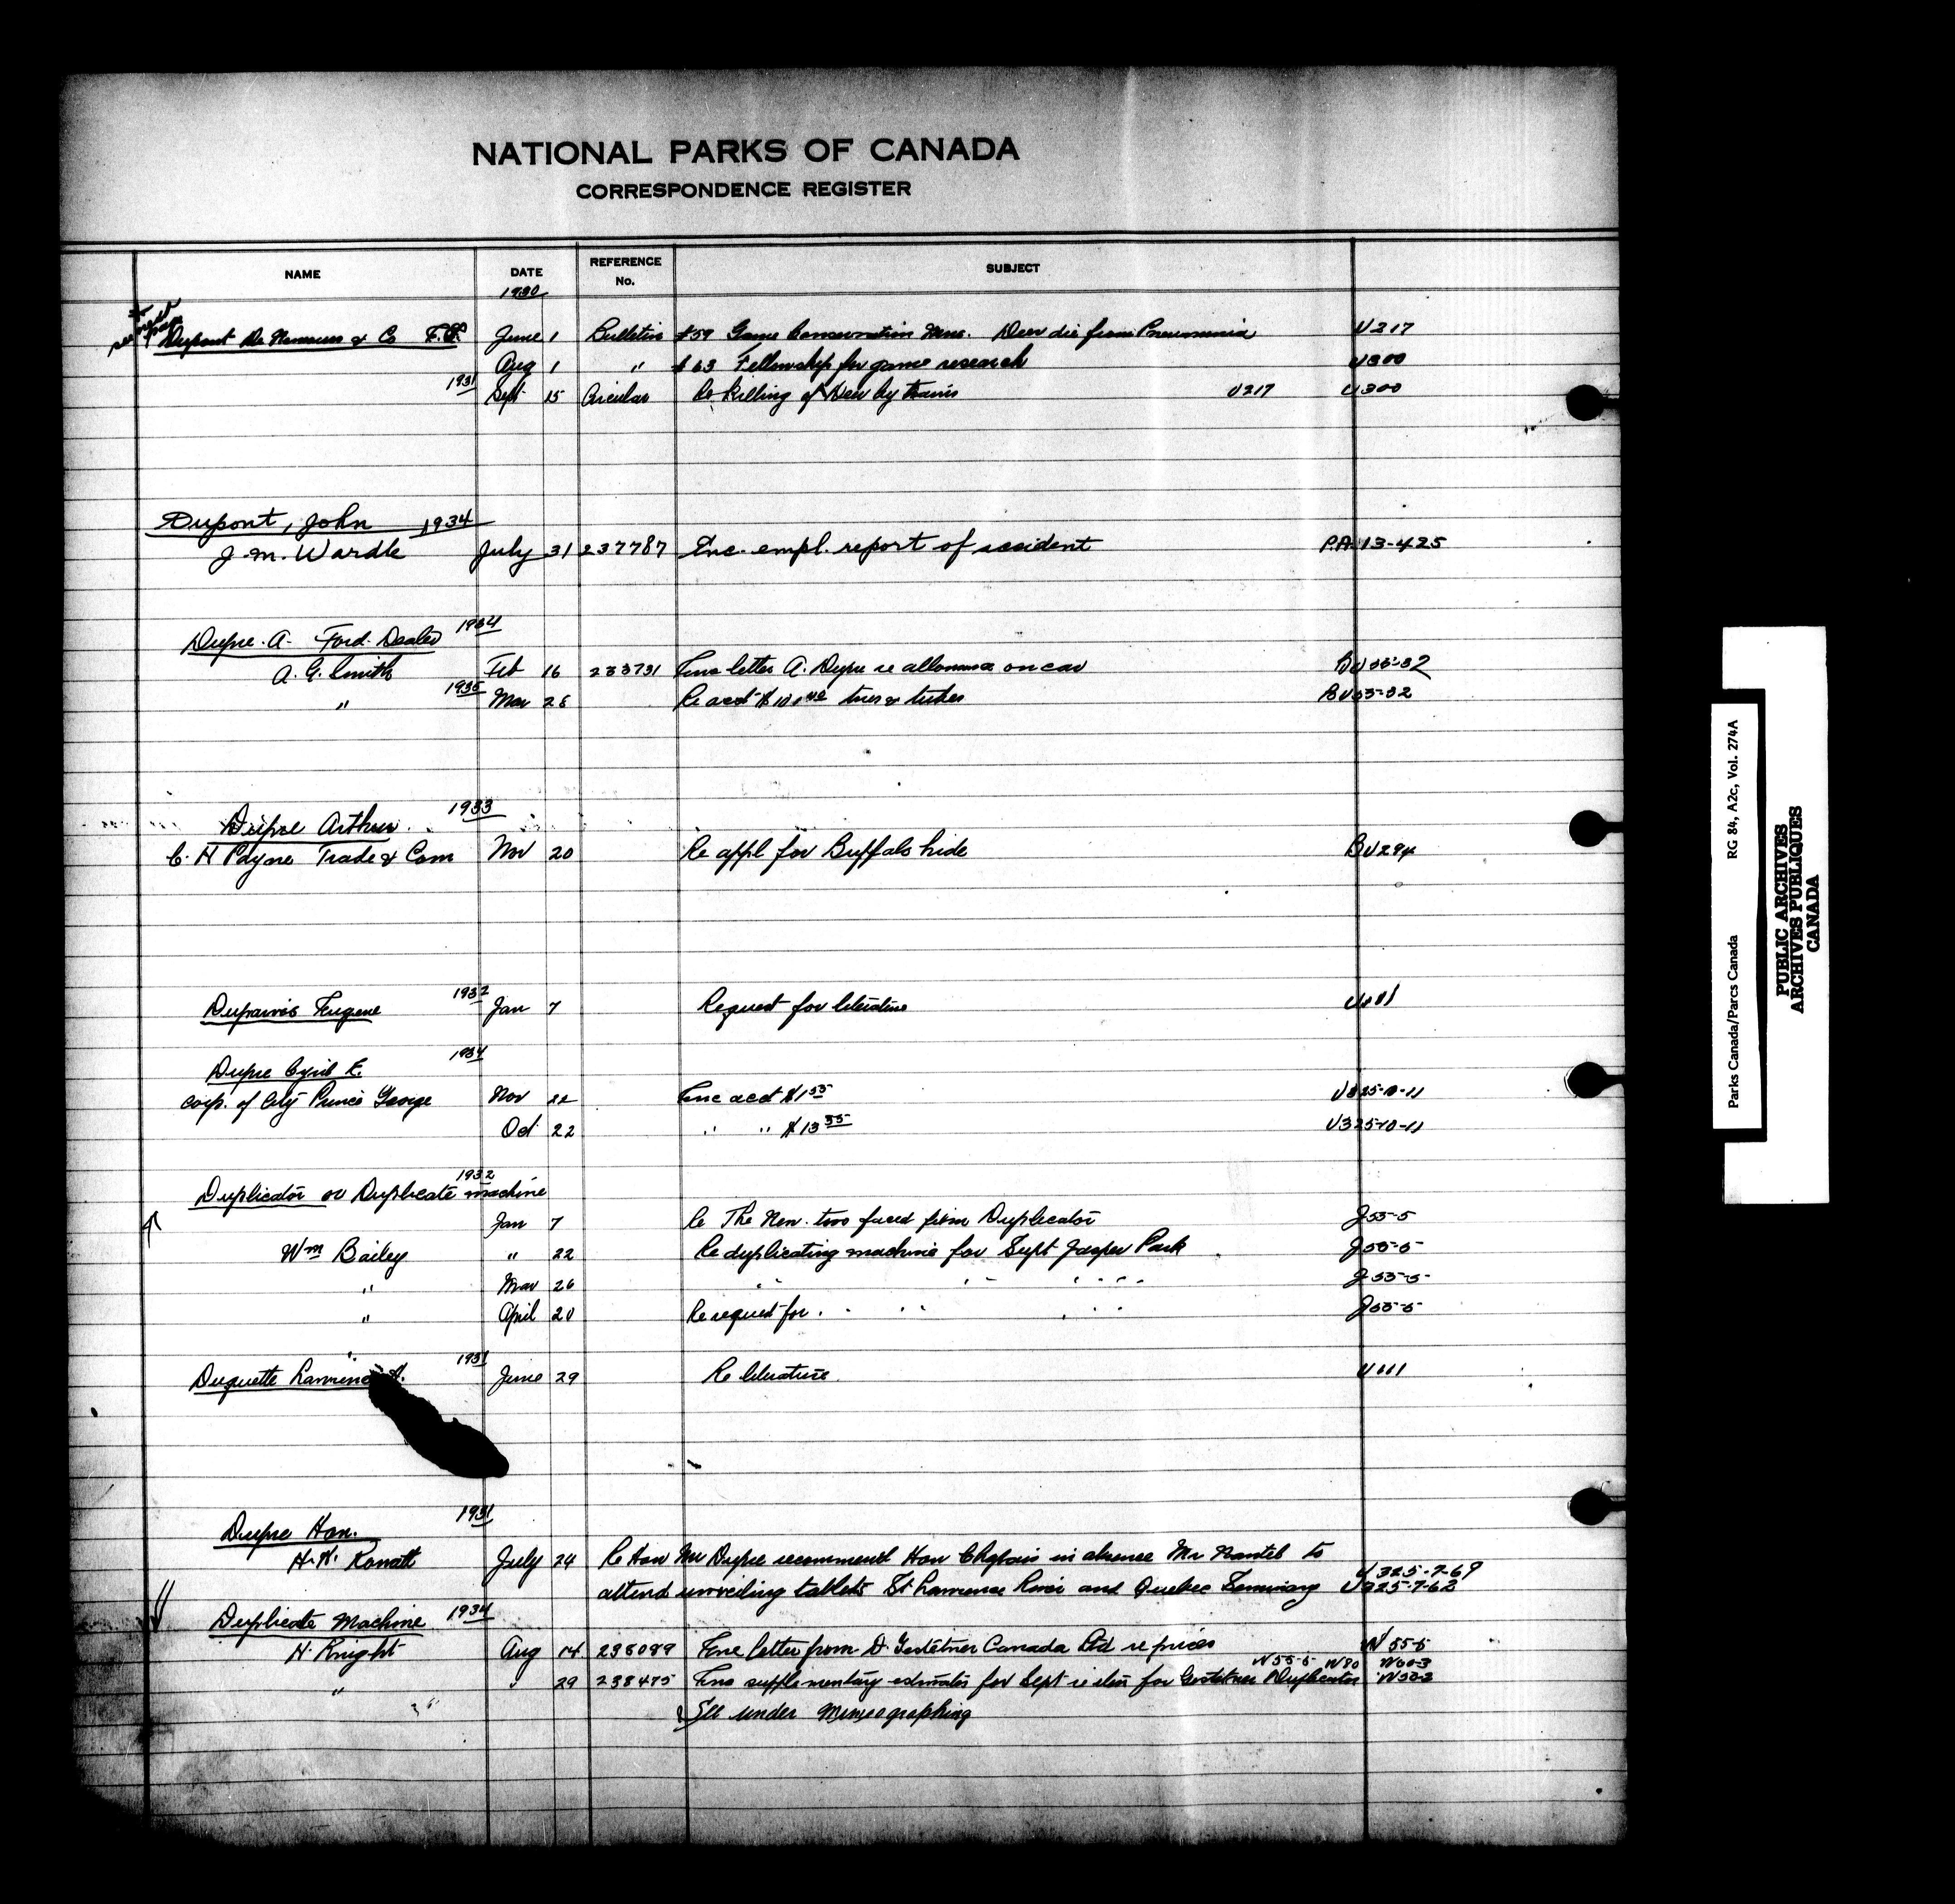 NATIONAL PARKS OF CANADA
CORRESPONDENCE REGISTER
NAME DATE REFERENCE No. SUBJECT
1930
see next page
Dupont De Nemours & Co June 1 Bulletin #59 Game Conservation Deer die from Pneumonia U217
Aug 1 " #63 Fellowship for game research U300
1931 Sept 15 Circular Re Killing of Deer by trains U217 U300
Dupont, John 1934
J. M. Wardle July 31 237787 Enc. empl. report of accident P.A. 13-425
Dupre. A- Ford. Dealer 1934
A. G. Smith Feb 16 233731 Enc letter A. Dupre re allowance on car
" 1935 Mar Re acct tires & tubes
Dupre Arthur. 1933
C. H Payne Trade & Com Nov 20 Re appl for Buffalo hide BU294
Eugene 1932 Jan 7 Request for literature U111
Dupre Cyril E. 1934
Corp. of City Prince George Nov 22 Enc acct $1 55 U325-10-11
Oct 22 " " $13 55 U325-10-11
Duplicator or Duplicate machine 1932
Jan 7 Re The New. two faced film Duplicator J55-5
Wm Bailey " 22 Re duplicating machine for Supt Jasper Park J55-5
" Mar 26 " " " J55-5
" April 20 Re request for " " " J55-5
Duquette 1931 June 29 Re literature U111
Dupre Hon. 1931
July 24 Re Hon Mr Dupre recommend Hon in absence Mr Nantel to U325-7-69
attend unveiling tablets St Lawrence River and Quebec Seminary U325-7-62
Duplicate Machine 1934
H. Knight Aug 14 238089 Enc letter from D. Gestetner Canada Ltd re prices W55-5
W55-5 W80
" 29 238475 Enc supplementary estimates for Sept re item for Gestetner Duplicator
See under Mimeographing
Parks Canada/Parcs Canada RG 84, A2c, Vol. 274A
PUBLIC ARCHIVES
ARCHIVES PUBLIQUES
CANADA